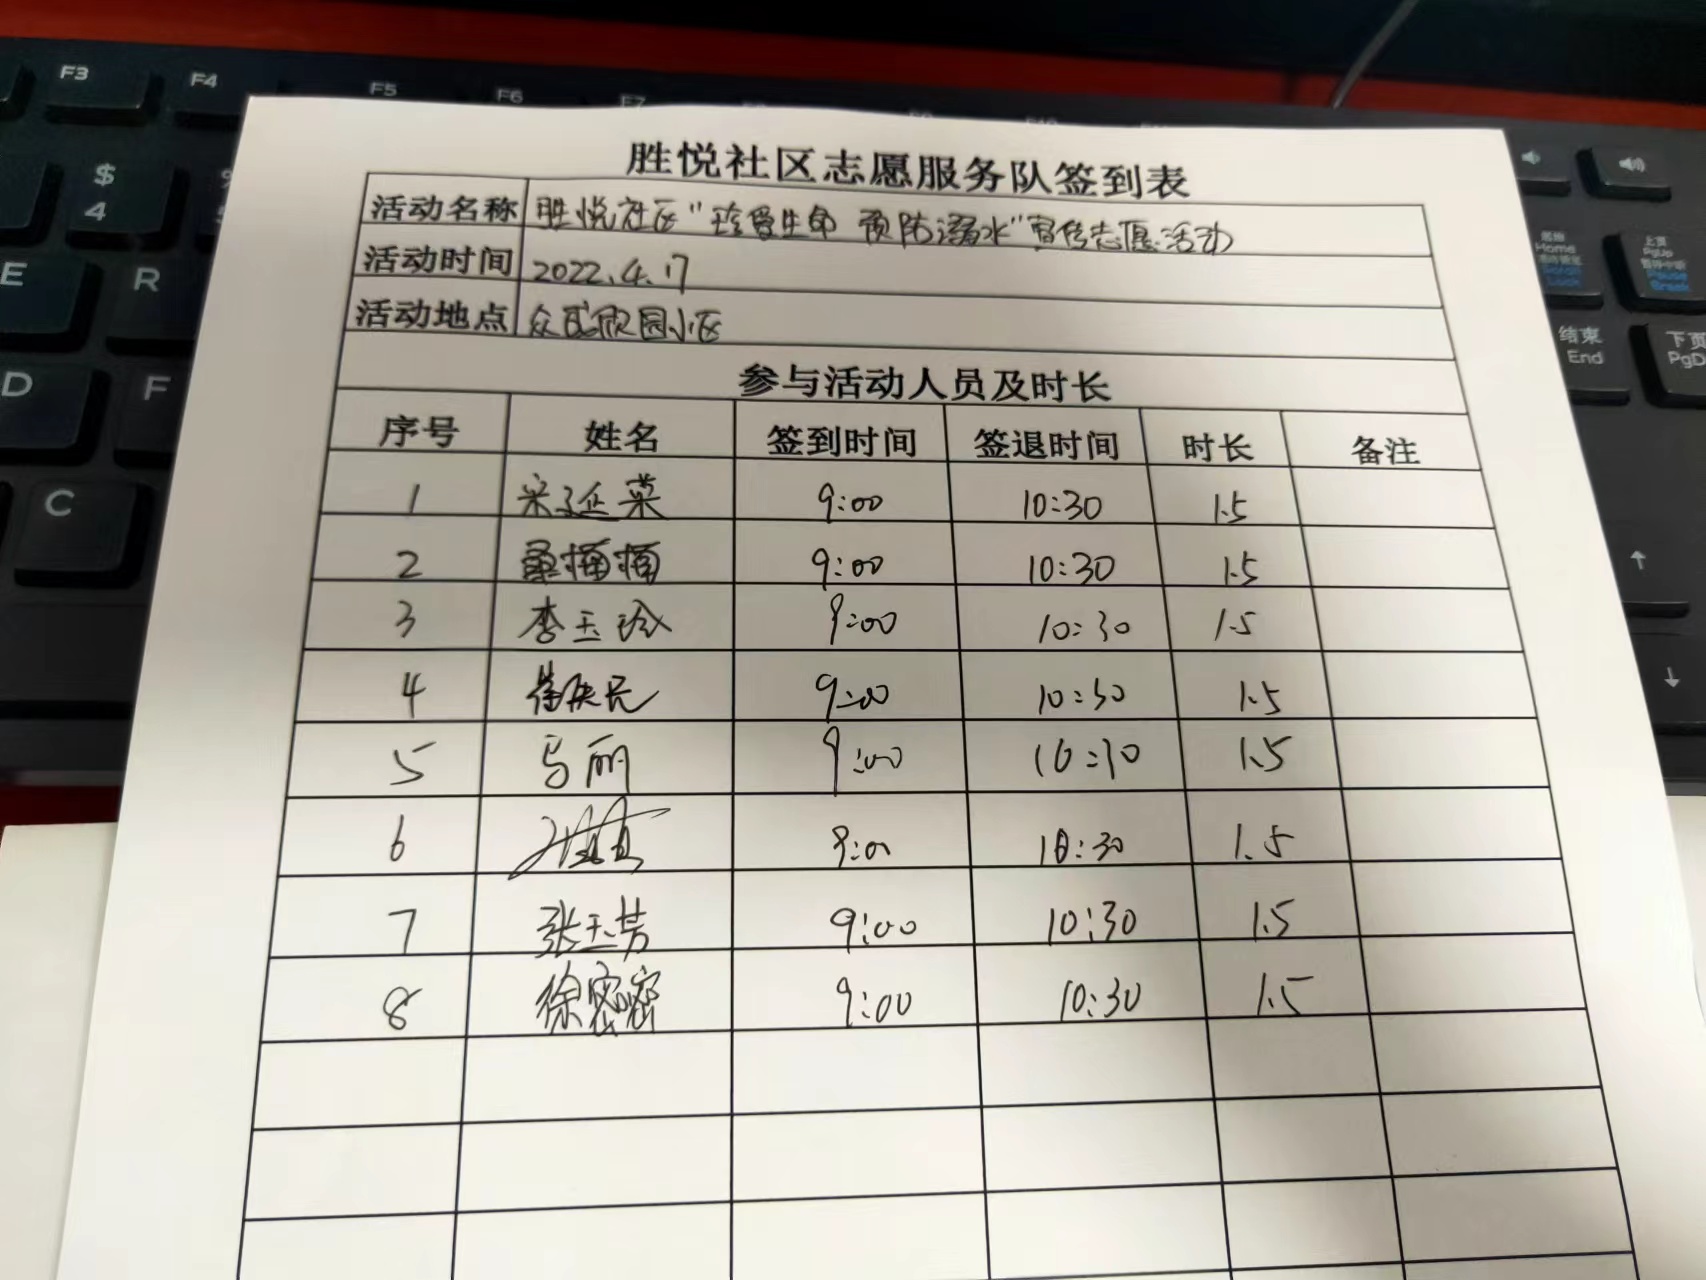 F3 F4 F5 F6 F7
$ 4
E R
D F
C
Home
上页 PgUp
Pause Break
结束 End
下页
↑
↓
胜悦社区志愿服务队签到表
活动名称 胜悦社区“珍爱生命 预防溺水”宣传志愿活动
活动时间 2022.4.17
活动地点 众成欣园小区
参与活动人员及时长
序号 姓名 签到时间 签退时间 时长 备注
1 宋延菜 9:00 10:30 1.5
2 9:00 10:30 1.5
3 李玉玲 9:00 10:30 1.5
4 9:00 10:30 1.5
5 马丽 9:00 10:30 1.5
6 9:00 10:30 1.5
7 张玉芳 9:00 10:30 1.5
8 徐密密 9:00 10:30 1.5